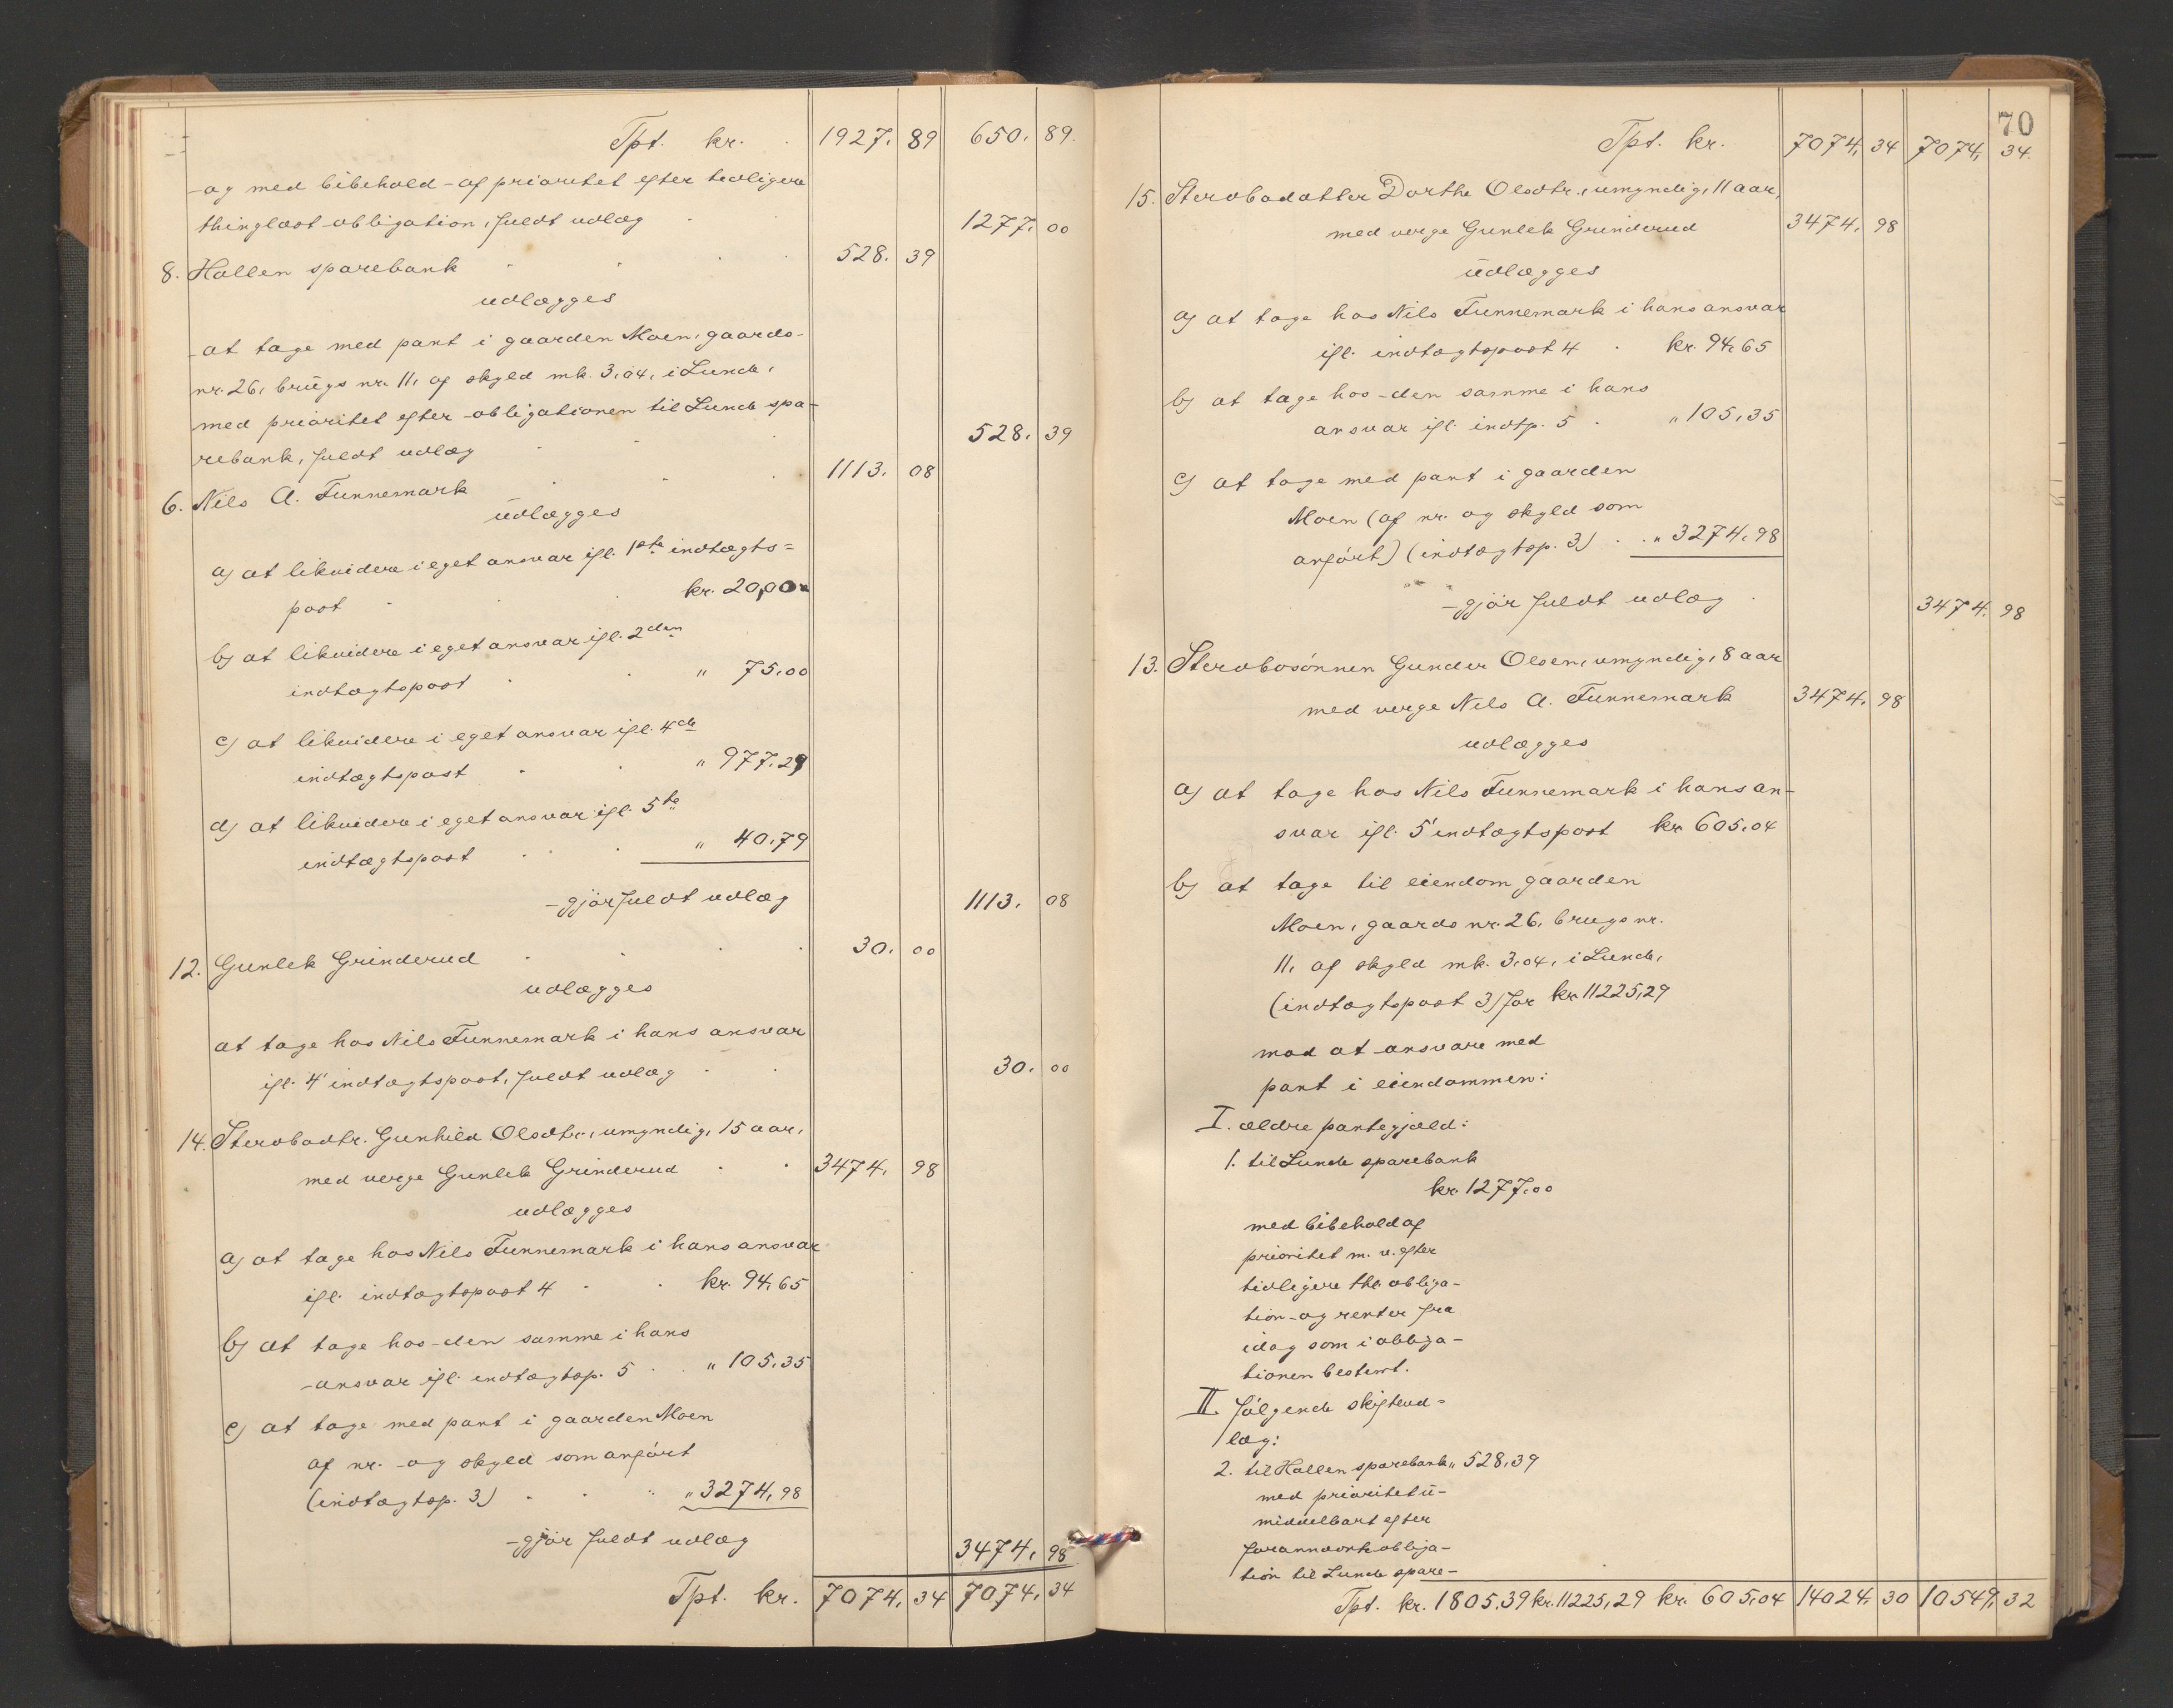 Tpt. kr. 1927. 89 650. 89.
og med bibehold af prioritet efter tidligere
thinglæst obligation, fuldt udlæg 1277. 00
8. Hollen sparebank 528. 39
udlægges
at tage med pant i gaarden Moen, gaards-
nr. 26, brugs nr. 11, af skyld mk. 3,04, i Lunde,
med prioritet efter obligationen til Lunde spa-
rebank, fuldt udlæg 528. 39
6. Nils A. Funnemark 1113. 08
udlægges
a) at likvidere i eget ansvar ifl. 1ste indtægts=
post kr. 20,00
b) at likvidere i eget ansvar ifl. 2den
indtægtspost " 75,00
c) at likvidere i eget ansvar ifl. 4de
indtægtspost " 977.29
d) at likvidere i eget ansvar ifl. 5te
indtægtspost " 40,79
gjør fuldt udlæg 1113. 08
12. Gunlek Grinderud 30. 00
udlægges
at tage hos Nils Funnemark i hans ansvar
ifl. 4' indtægtspost, fuldt udlæg 30. 00
14. Stervbodtr. Gunhild Olsdtr., umyndig, 15 aar,
med verge Gunlek Grinderud 3474. 98
udlægges
a) at tage hos Nils Funnemark i hans ansvar
ifl. indtægtspost 4 kr. 94,65
b) at tage hos den samme i hans
ansvar ifl. indtægtsp. 5 " 105,35
c) at tage med pant i gaarden Moen
af nr. og skyld som anført
(indtægtsp. 3) " 3274,98
gjør fuldt udlæg 3474. 98
Tpt. kr. 7074. 34 7074. 34
70
Tpt. kr. 7074. 34 7074. 34.
15. Stervbodatter Dorthe Olsdtr., umyndig, 11 aar,
med verge Gunlek Grinderud 3474. 98
udlægges
a) at tage hos Nils Funnemark i hans ansvar
ifl. indtægtspost 4 kr. 94,65
b) at tage hos den samme i hans
ansvar ifl. indtp. 5 " 105,35
c) at tage med pant i gaarden
Moen (af nr. og skyld som
anført) (indtægtsp. 3) " 3274,98
gjør fuldt udlæg 3474. 98
13. Stervbosønnen Gunder Olsen, umyndig, 8 aar
med verge Nils A. Funnemark 3474. 98
udlægges
a) at tage hos Nils Funnemark i hans an-
svar ifl. 5' indtægtspost kr. 605,04
b) at tage til eiendom gaarden
Moen, gaards nr. 26, brugs nr.
11, af skyld mk. 3,04, i Lunde,
(indtægtspost 3) for kr. 11225,29
mod at ansvare med
pant i eiendommen:
I. ældre pantegjæld:
1. til Lunde sparebank
kr. 1277,00
med bibehold af
prioritet m. v. efter
tidligere thl. obliga-
tion og renter fra
idag som i obliga-
tionen bestemt.
II. følgende skifteud=
læg:
2. til Hollen sparebank " 528,39
med prioritet u-
middelbart efter
forannævnte obliga-
tion til Lunde spare-
Tpt. kr. 1805,39 kr. 11225,29 kr. 605,04 14024. 30 10549. 32